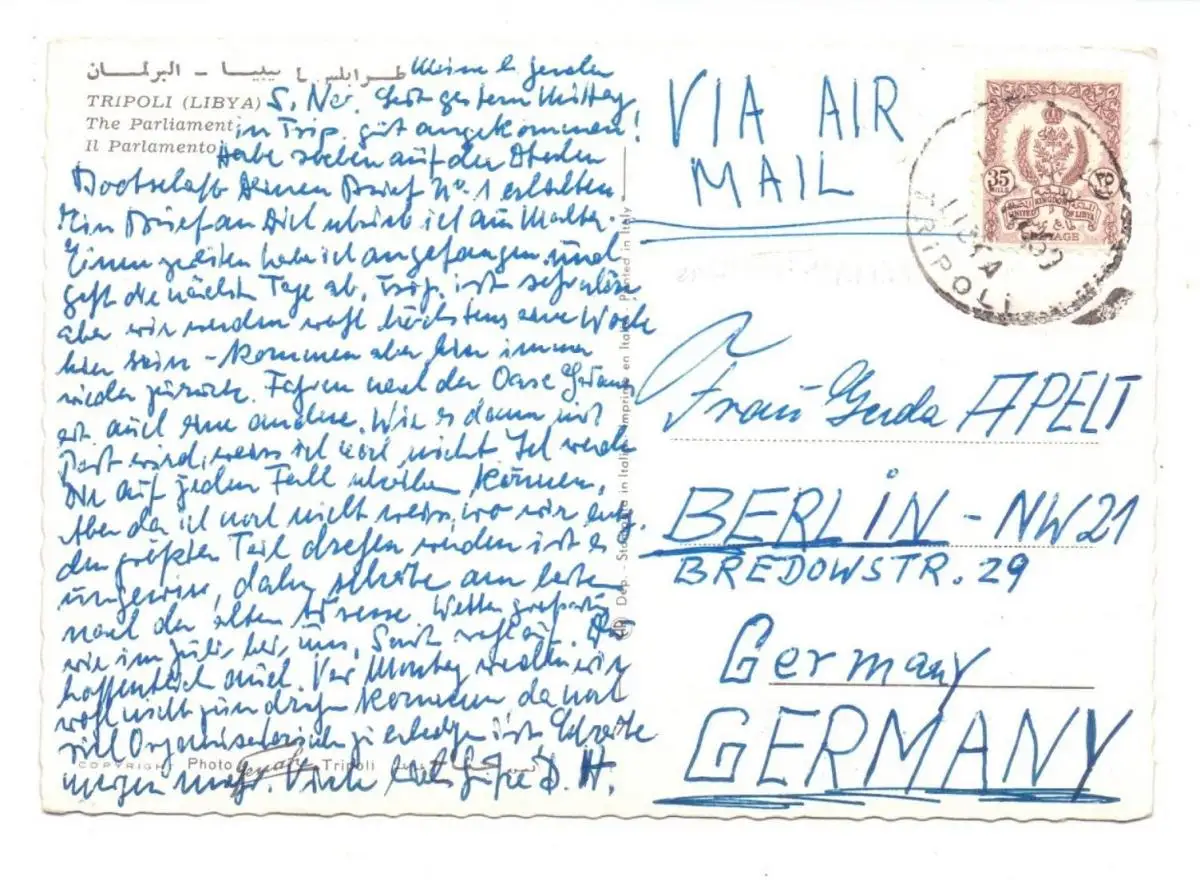 طرابلس ـ ليبيا - البرلمان
TRIPOLI (LIBYA)
The Parliament
Il Parlamento
Meine l. Gerda
5. Nov. Seit gestern Mittag
in Trip. gut angekommen!
Habe soeben auf der
Botschaft Deinen Brief No. 1 erhalten
Ein Brief an Dich schrieb ich aus Malta.
Einen zweiten habe ich angefangen und
geht die nächsten Tage ab. Trip. ist sehr schön
aber wir werden wohl höchstens eine Woche
hier sein - kommen aber hier immer
wieder zurück. Fahren nach der Oase
auch eine andere. Wie es dann mit
Post wird, weiss ich noch nicht. Ich werde
Dir auf jeden Fall schreiben können,
Aber da ich noch nicht weiss, wo wir
den größten Teil drehen werden ist es
ungewiss, daher schreibe am besten
nach der alten Adresse. Wetter
wie im Juli, bei uns, Sonst wohlauf.
hoffentlich auch. Vor Montag werden wir
wohl nicht zum drehen kommen da noch
viel Organisatorisch zu erledigen ist. Schreibe
morgen mehr. Viele Grüße D. H.
COPYRIGHT Photo Tripoli
Printed in Italy
VIA AIR
MAIL
35
MILLS
UNITED KINGDOM OF LIBYA
POSTAGE
TRIPOLI
LIBYA
Frau Gerda APELT
BERLIN - NW 21
BREDOWSTR. 29
Germany
GERMANY